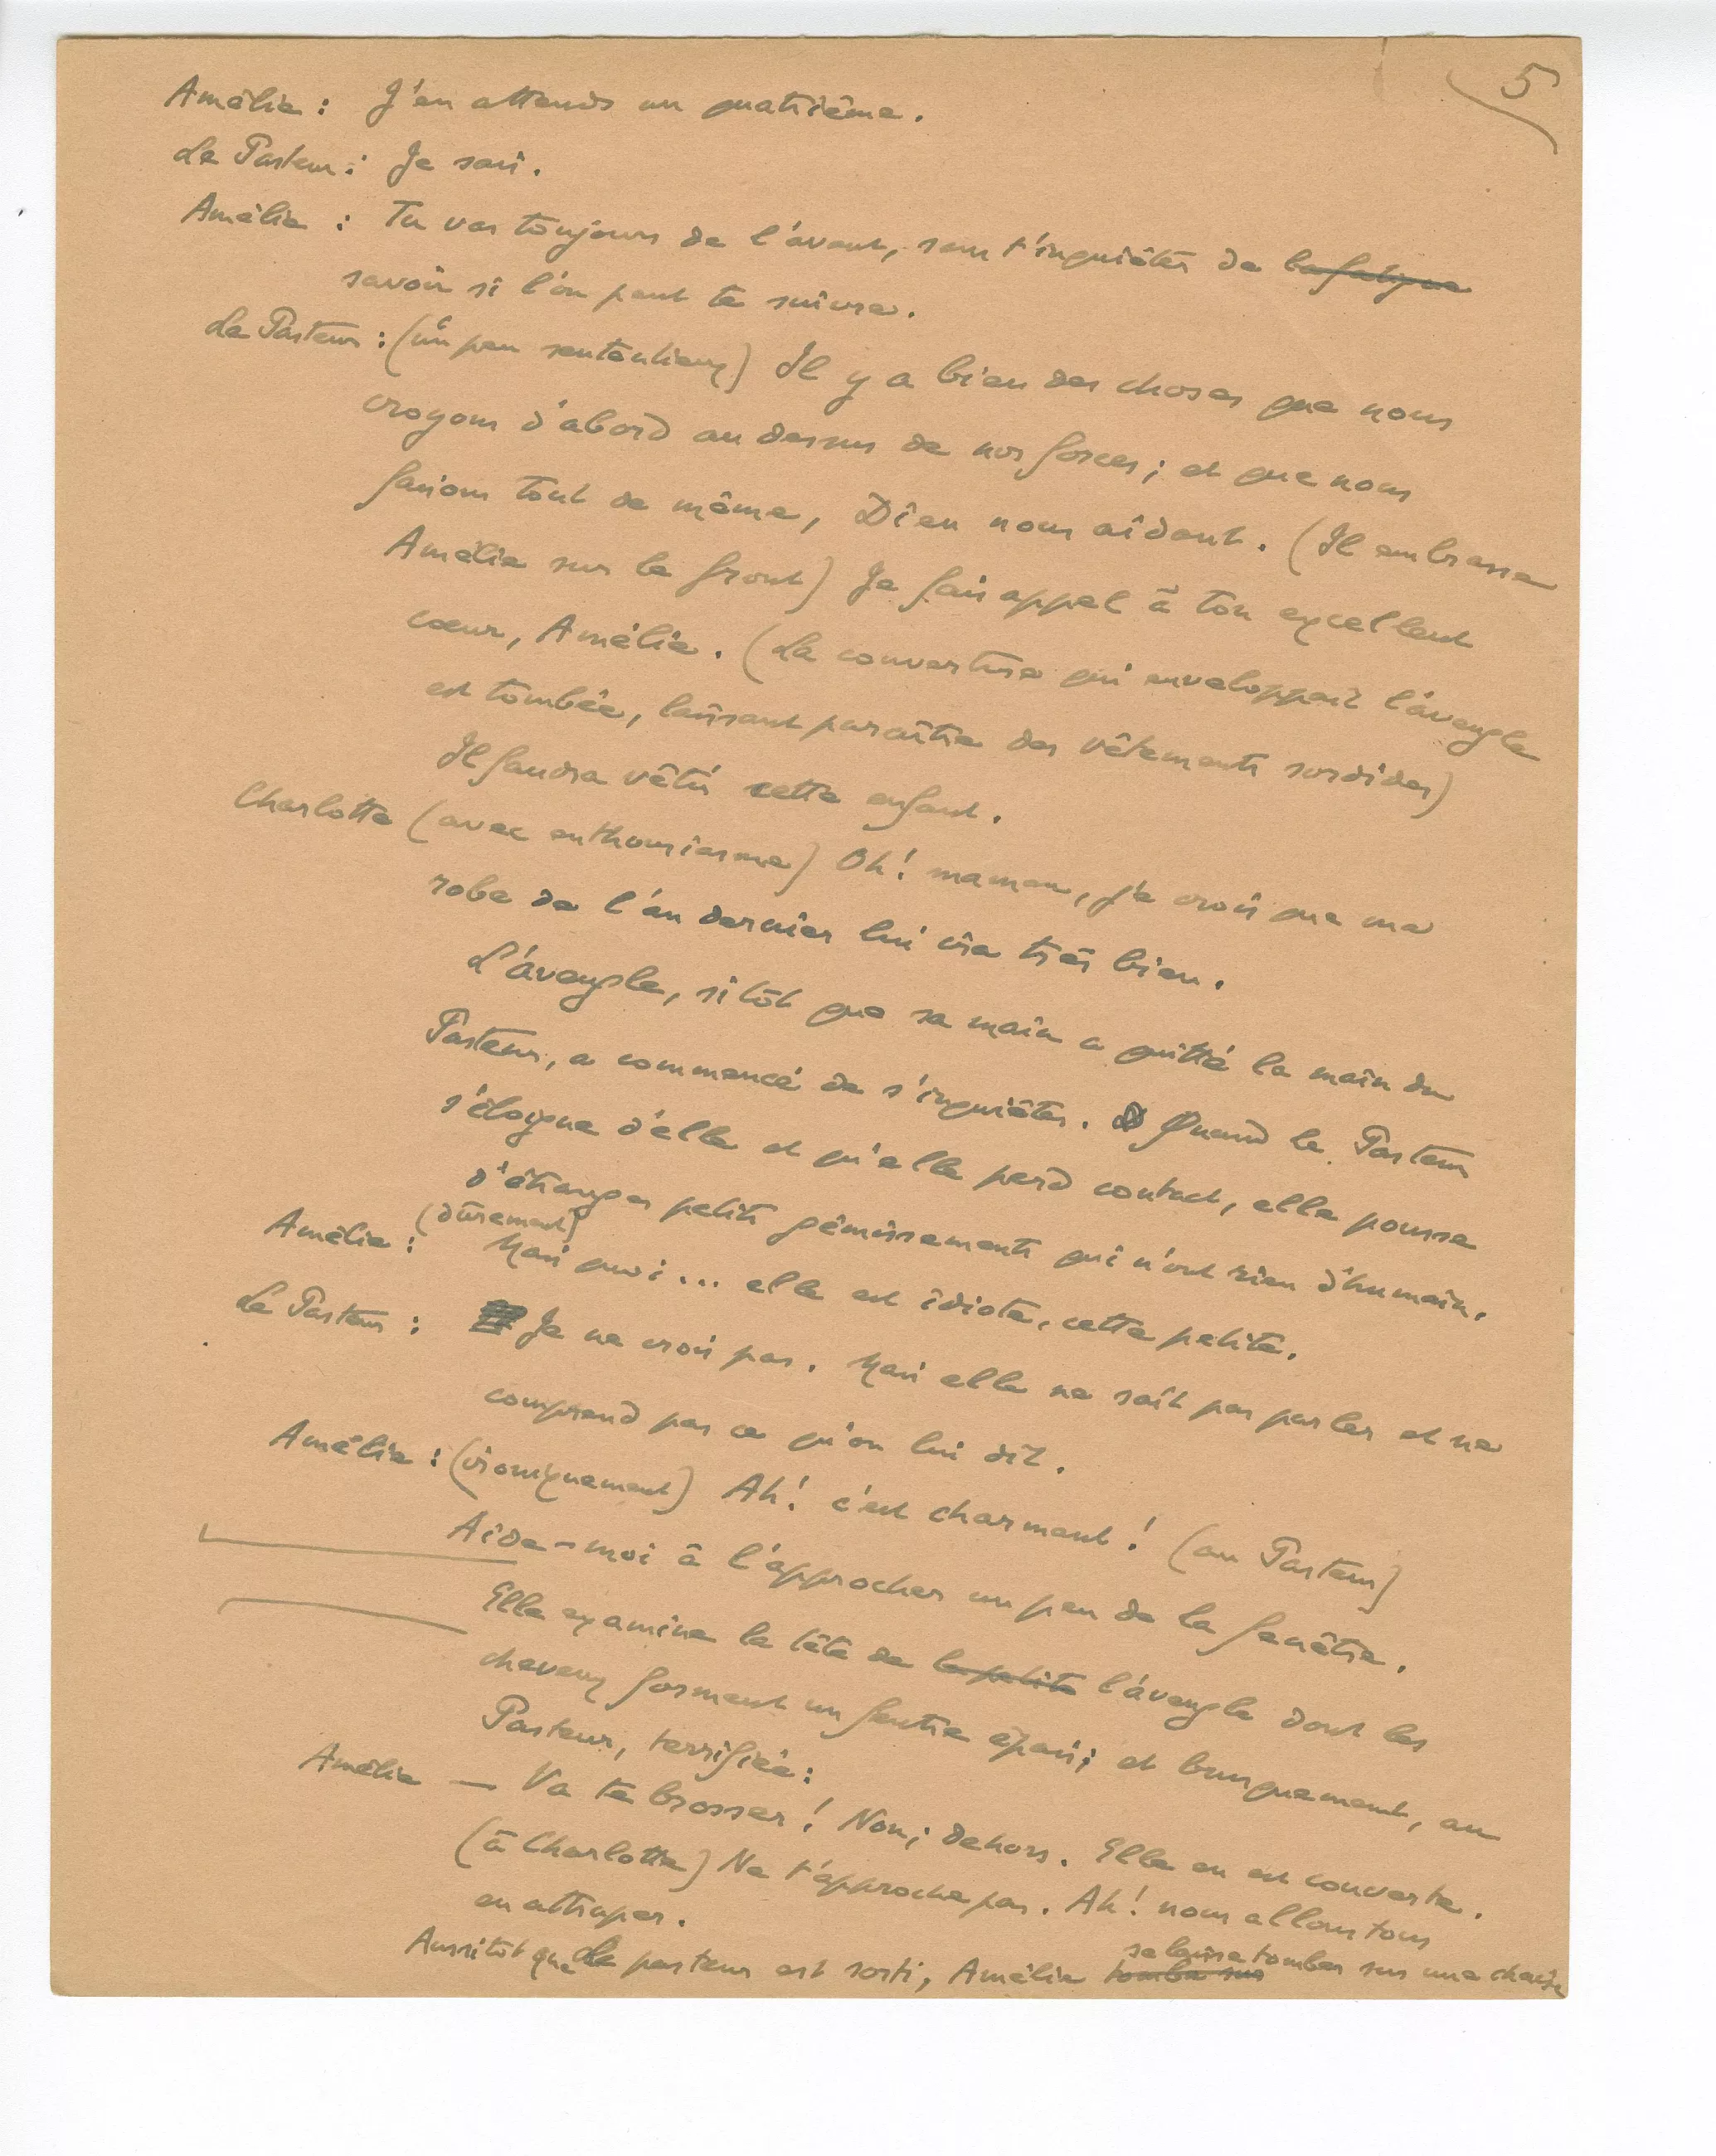 5
Amélie : J'en attends un quatrième.
Le Pasteur : Je sais.
Amélie : Tu vas toujours de l'avant, sans t'inquiéter de la fatigue
savoir si l'on peut te suivre.
Le Pasteur : (un peu sentencieux) Il y a bien des choses que nous
croyons d'abord au dessus de nos forces ; et que nous
faisons tout de même, Dieu nous aidant. (Il embrasse
Amélie sur le front) Je fais appel à ton excellent
cœur, Amélie. (La couverture qui enveloppait l'aveugle
est tombée, laissant paraître des vêtements sordides)
Il faudra vêtir cette enfant.
Charlotte (avec enthousiasme) Oh ! maman, je crois que ma
robe de l'an dernier lui ira très bien.
L'aveugle, sitôt que sa main a quitté la main du
Pasteur, a commencé de s'inquiéter. Quand le Pasteur
s'éloigne d'elle et qu'elle perd contact, elle pousse
d'étranges petits gémissements qui n'ont rien d'humain.
(durement)
Amélie : Mais quoi ... elle est idiote, cette petite.
Le Pasteur : Je ne crois pas. Mais elle ne sait pas parler et ne
comprend pas ce qu'on lui dit.
Amélie : (ironiquement) Ah ! c'est charmant ! (au Pasteur)
Aide-moi à l'approcher un peu de la fenêtre.
Elle examine la tête de la petite l'aveugle dont les
cheveux forment un feutre épais ; et brusquement, au
Pasteur, terrifiée :
Amélie — Va te brosser ! Non ; dehors. Elle en est couverte.
(à Charlotte) Ne t'approche pas. Ah ! nous allons tous
en attraper.
se laisse tomber sur une chaise
Aussitôt que le pasteur est sorti, Amélie tombe sur